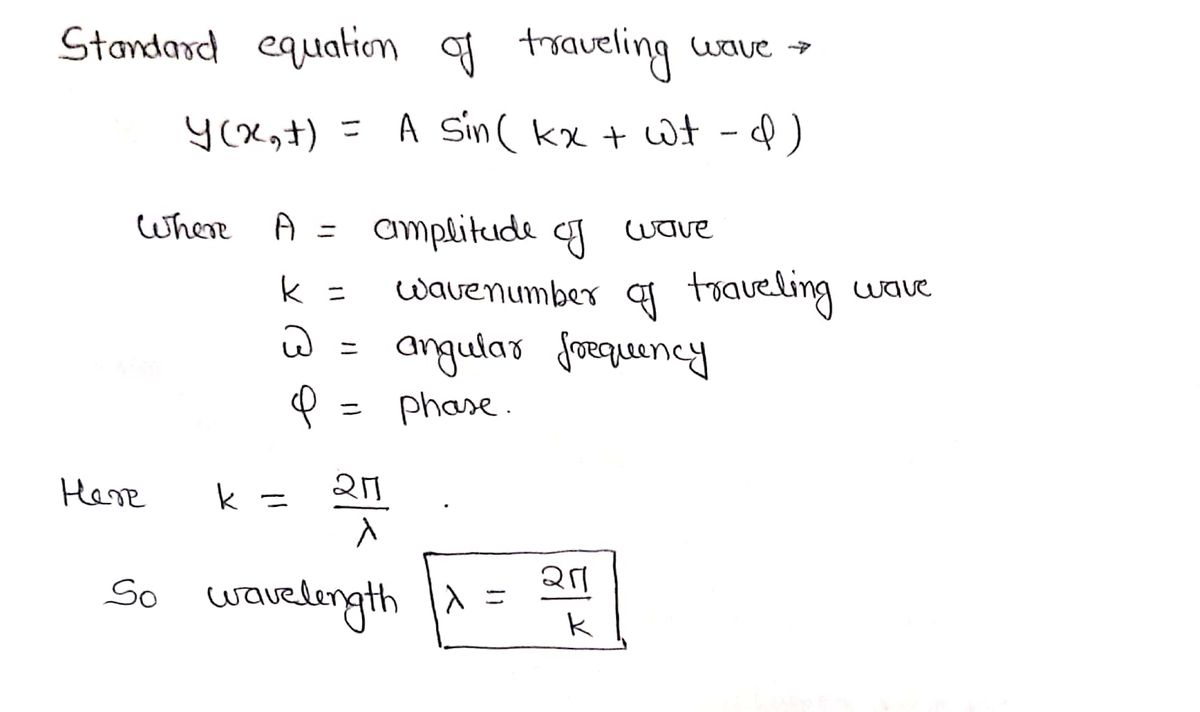 Standard equation of traveling wave →
y(x,t) = A Sin( kx + ωt - φ )
Where A = amplitude of wave
k = wavenumber of traveling wave
ω = angular frequency
φ = phase.
Here k = 2π/λ .
So wavelength λ = 2π/k